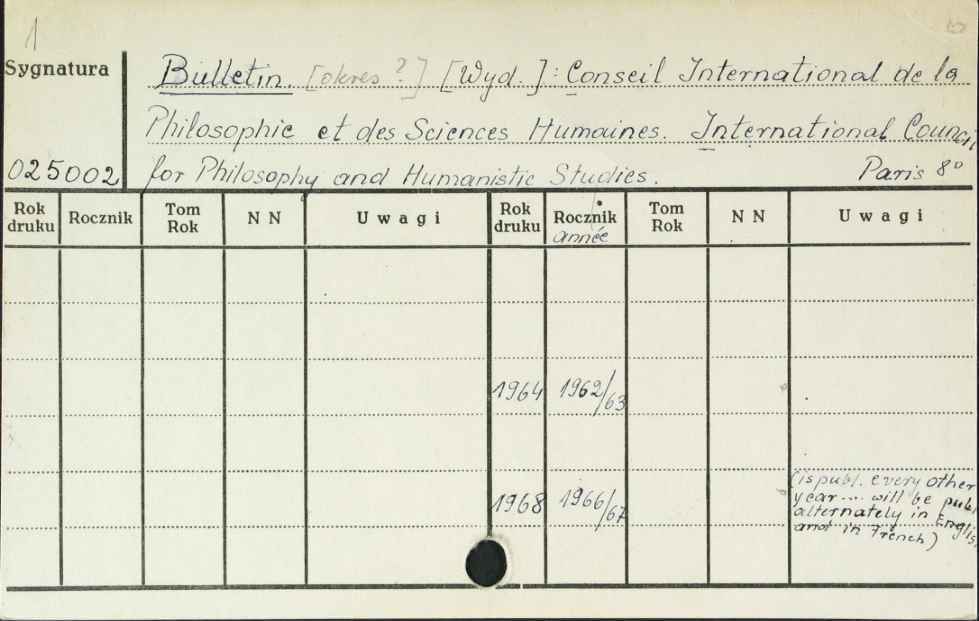 1
Sygnatura
Bulletin. [okres ?] [Wyd.]: Conseil International de la
Philosophie et des Sciences Humaines. International Council
025002
for Philosophy and Humanistic Studies. Paris 8°
Rok druku Rocznik Tom Rok NN Uwagi Rok druku Rocznik année Tom Rok NN Uwagi
1964 1962/63
1968 1966/67
(is publ. every other
year ... will be publ.
alternately in English
and in French)